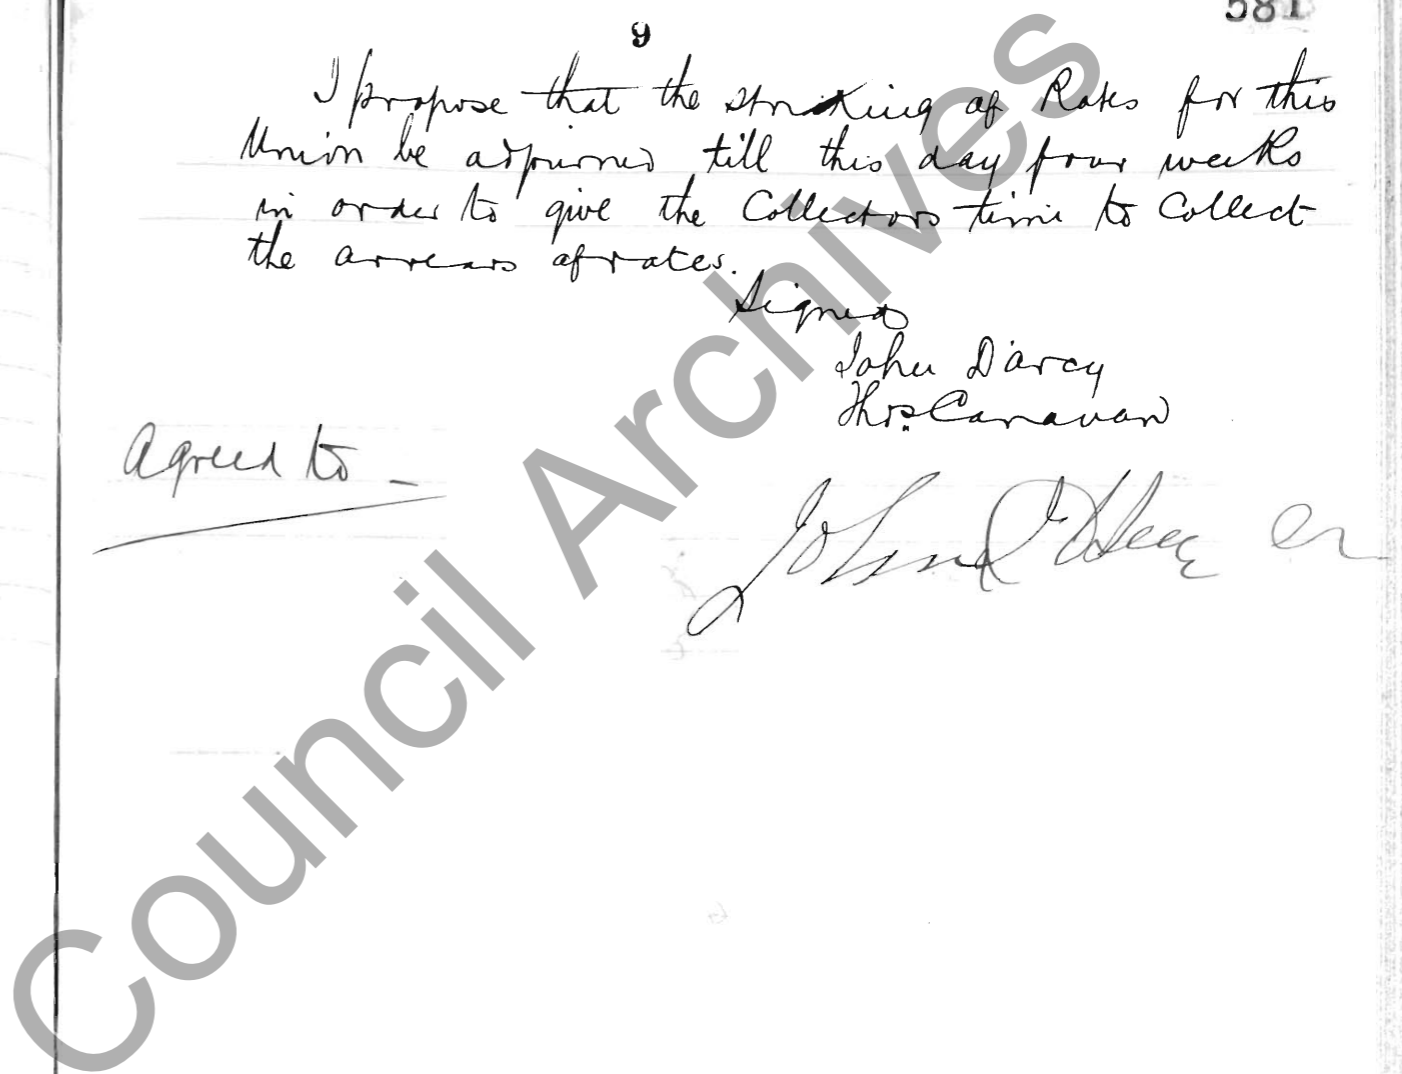 9
581
I propose that the striking of Rates for this
Union be adjourned till this day four weeks
in order to give the Collectors time to Collect
the arrears of rates.
Signed
John D'arcy
Thos. Canavan
Agreed to –
John
Council Archives